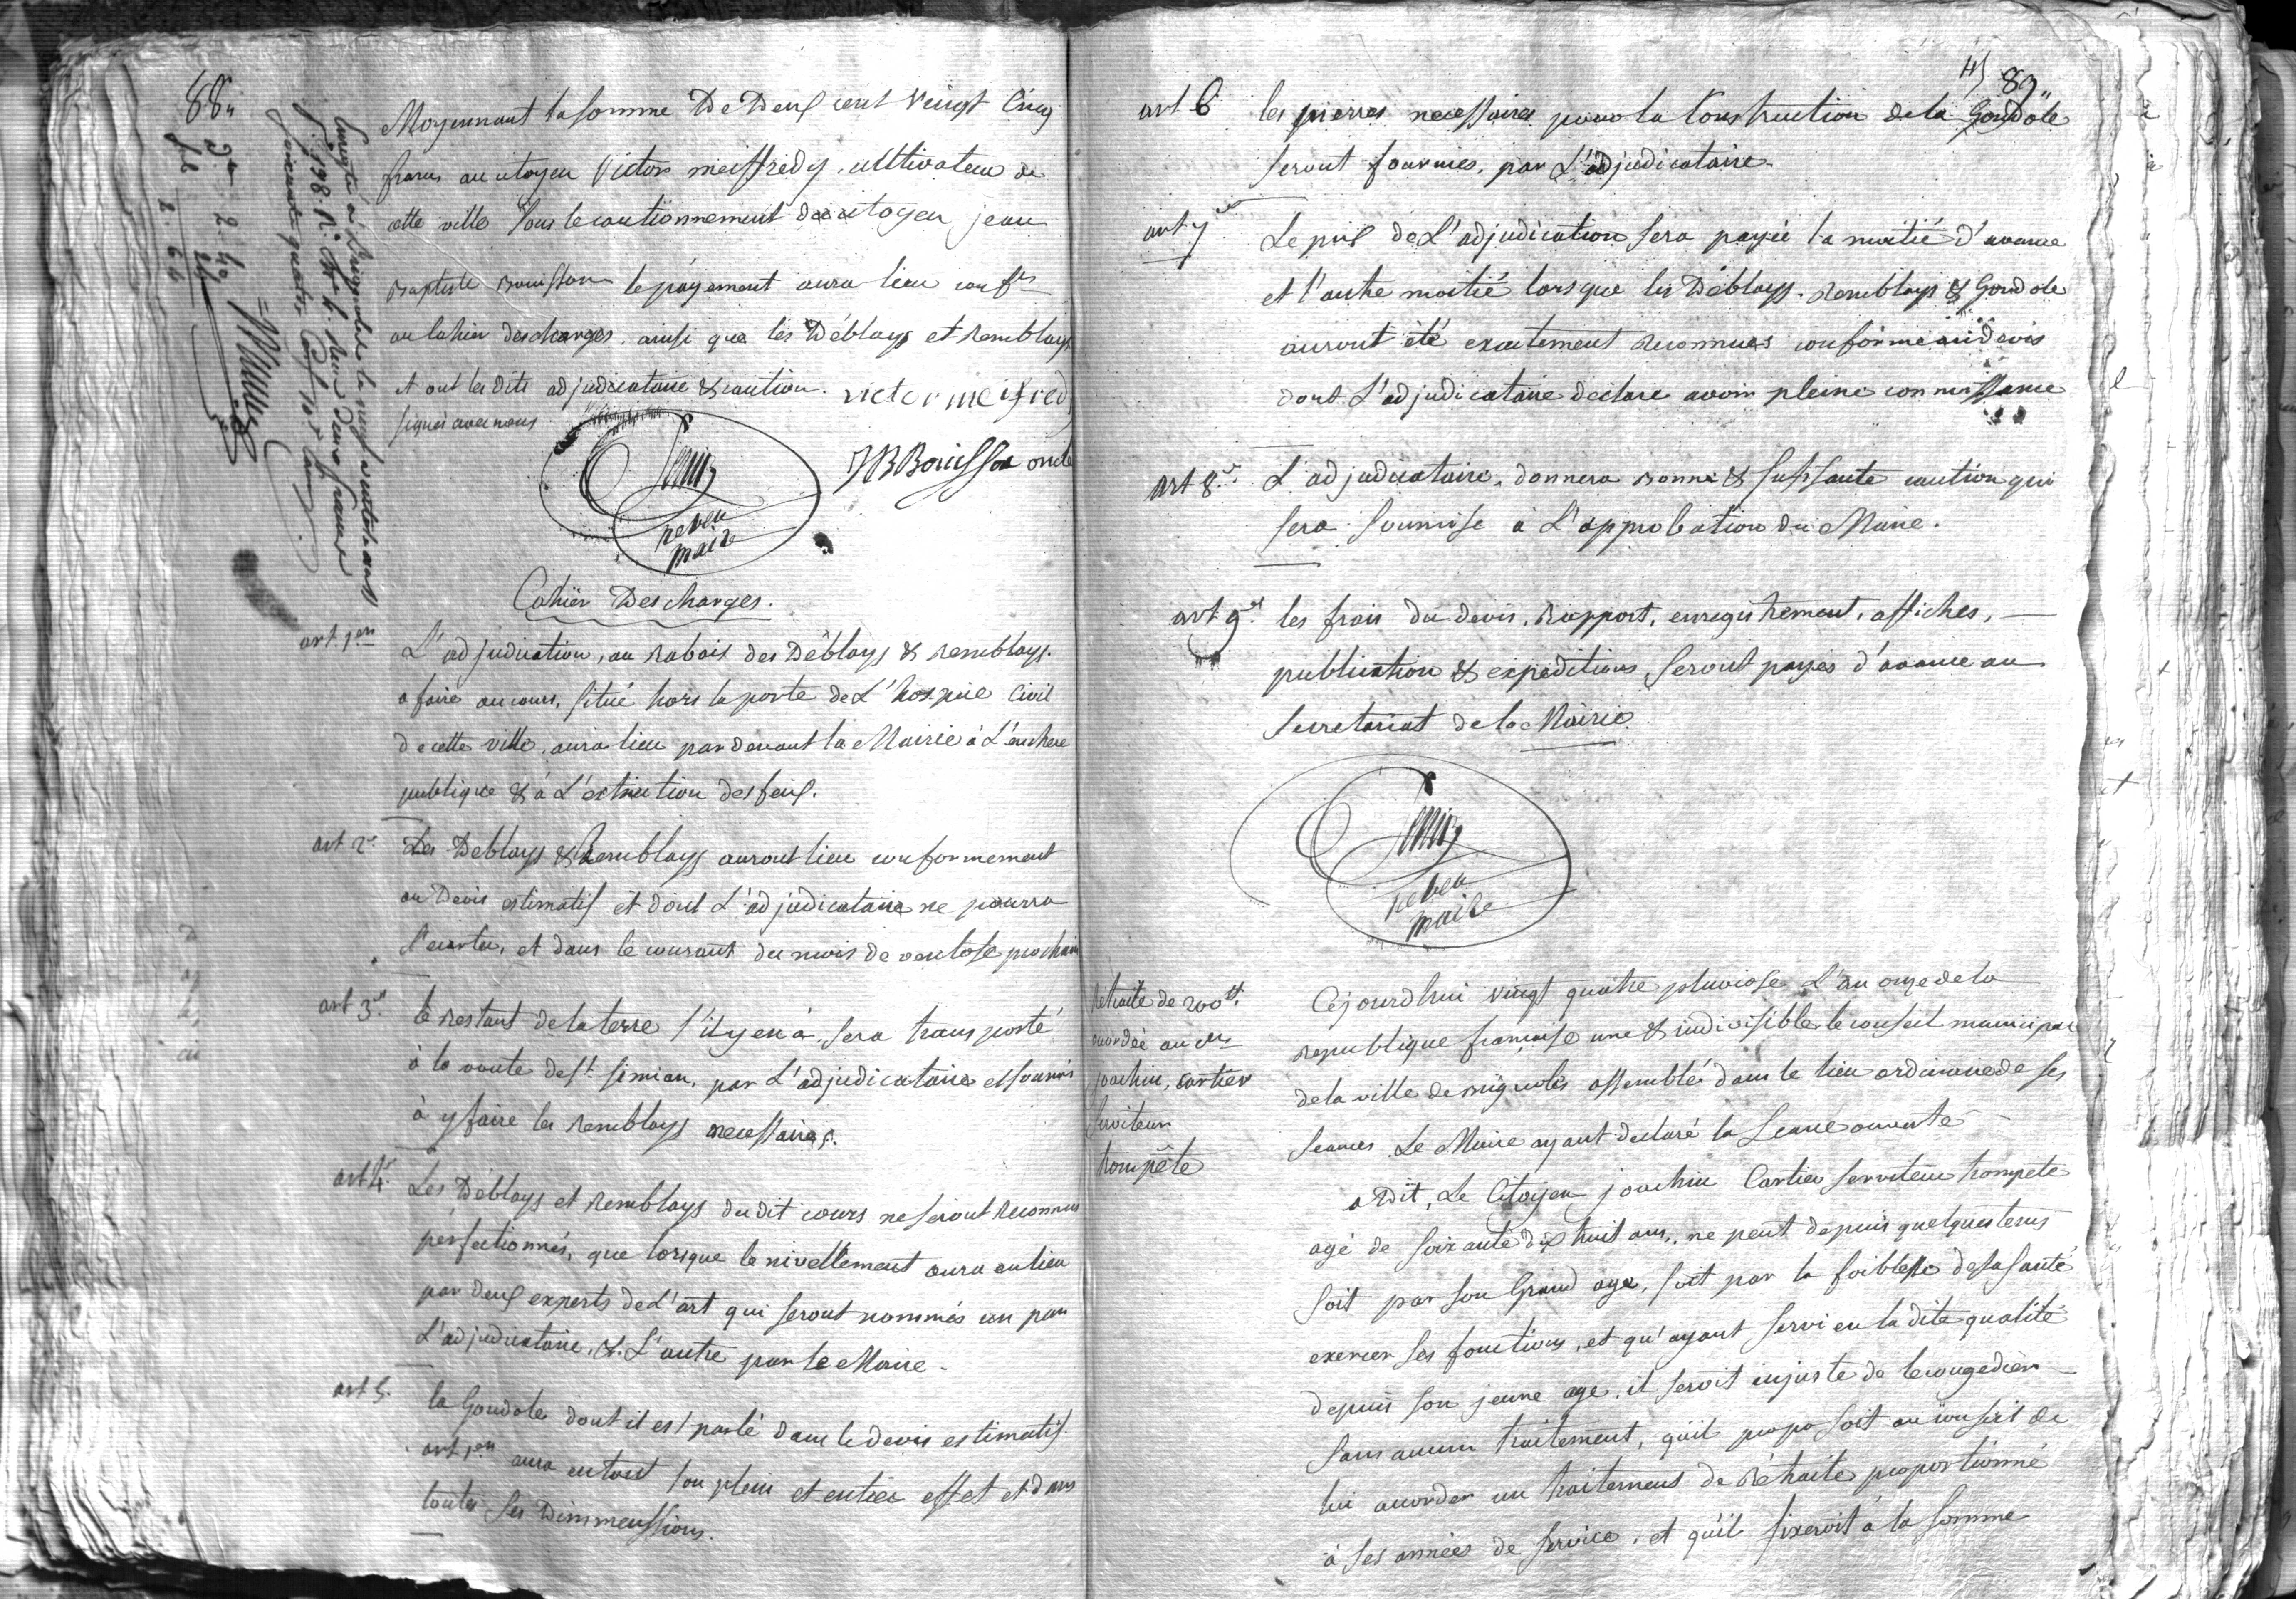 88"
Moyennant la somme De Deux cent vingt Cinq
francs au citoyen Victor meiffredy, cultivateur de
cette ville sous le cautionnement du citoyen jean
Baptiste Bouisson le payement aura lieu conf.t
au Cahier des charges, ainsi que les Déblays et Remblays
et ont les dits adjudicataire & caution.
signés avec nous
victor meifredy
JB Bouisson oncle
neveu
maire
Enregistré à Brignoles le neuf ventose an 11
f.o 198. R.o
soixante quatre Cent.
D.e 2. 40
24
2. 64
Cahier Des charges.
art. 1.er L'adjudication, au Rabais des Déblays & remblays.
a faire au cours, situé hors la porte de L'hospice Civil
de cette ville, aura lieu par devant la Mairie à L'enchere
publique & à L'extinction des feux.
art 2.e Les Deblays & Remblays auront lieu conformement
au Devis estimatif et dont L'adjudicataire ne pourra
s'ecarter, et dans le courant du mois de ventose prochain
art 3.e le restant de la terre s'il y en à, sera transporté
à la voute de st. simian, par L'adjudicataire et soumis
à y faire les Remblays necessaires.
art 4.e Les Déblays et Remblays du dit cours ne seront Reconnus
perfectionnés, que lorsque le nivellement aura eu lieu
par deux experts de L'art qui seront nommés un par
L'adjudicataire, & L'autre par le Maire.
art 5. la Gondole dont il est parlé dans le devis estimatif
art 1.er aura en tout son plein et entier effet et dans
toutes ses Dimmenssions.
45 89"
art 6 les pierres necessaires pour la Construction de la Gondole
seront fournies, par L'adjudicataire.
art 7 Le prix de L'adjudication sera payée la moitié d'avance
et l'autre moitié lors que les Déblays. Remblays & Gondole
auront été exactement Reconnues conforme au Devis
dont L'adjudicataire declare avoir pleine connoissance
art 8.e L'adjudicataire, donnera Bonne & suffsante caution qui
sera soumise à L'approbation du Maire.
art 9.e les frais du devis, Rapport, enregistrement, affiches,
publication & expeditions, seront payés d'avance au
secretariat de la Mairie.
neveu
maire
Retraite de 200tt.
accordée au cit.en
joachim, Cartier
Serviteur
trompête
Cejourdhui vingt quatre pluviose L'an onze de la
Republique française une & indivisible le conseil municipal
de la ville de Brignoles assemblé dans le lieu ordinaire de ses
seances. Le Maire ayant declaré la Seance ouverte
a Dit, Le Citoyen joachim Cartier serviteur trompete
agé de soixante dix huit ans, ne peut depuis quelques tems
soit par son Grand age, soit par la foiblesse de sa santé
exercer ses fonctions, et qu'ayant servi en la dite qualité
depuis son jeune age, il seroit injuste de le congedier
sans aucun traitement, qu'il proposoit au conseil de
lui accorder un traitement de Rétraite proportionné
à ses années de service, et qu'il fixeroit à la somme